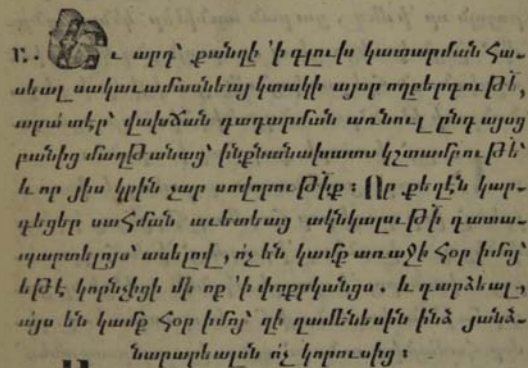 բ. Եւ արդ՝ քանզի ՚ի գլուխ կատարման հա֊
սեալ սակաւամասնեայ կտակի այսր ողբերգուԹԷ,
արա տէր՝ վախճան դադարման առնուլ ընդ այսց
բանից մաղթանաց՝ ինքնանախատս կշտամբուԹԷ՝
և որ յիս կրին չար սովորուԹիք ։ Որ քեզէն կար֊
դեցեր սահման աւետեաց ակնկալուԹի դատա֊
պարտելոյս՝ ասելով, ո՛չ են կամք առաջի հօր իմոյ՝
եթէ կորնչիցի մի ոք ՚ի փոքրկանցս. և դարձեալ,
այս են կամք հօր իմոյ՝ զի զամենեսին ինձ յանձ֊
նարարեալսն ո՛չ կորուսից ։